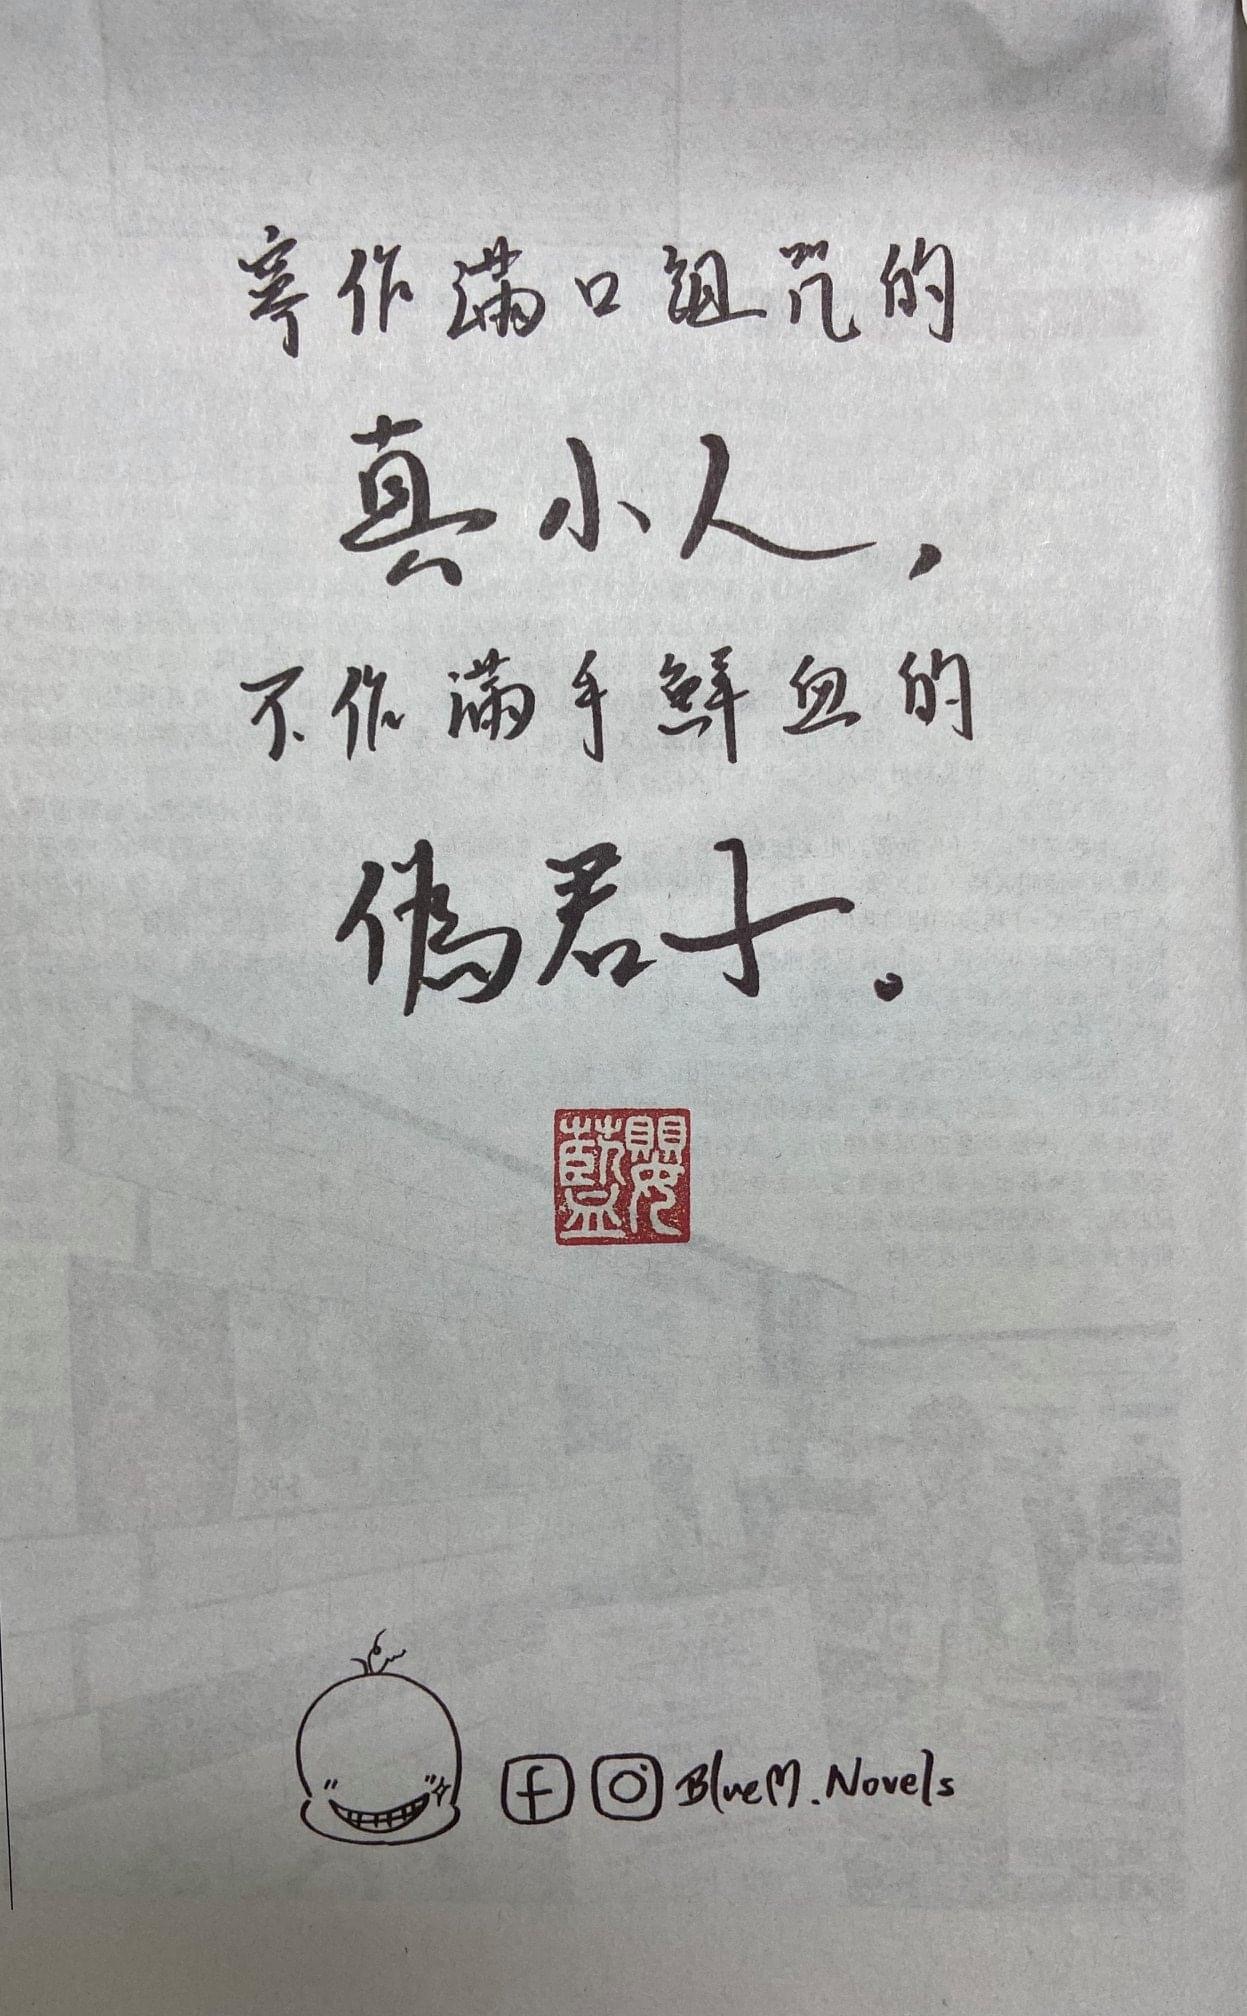 寧作滿口詛咒的
真小人，
不作滿手鮮血的
偽君子。
BlueM.Novels